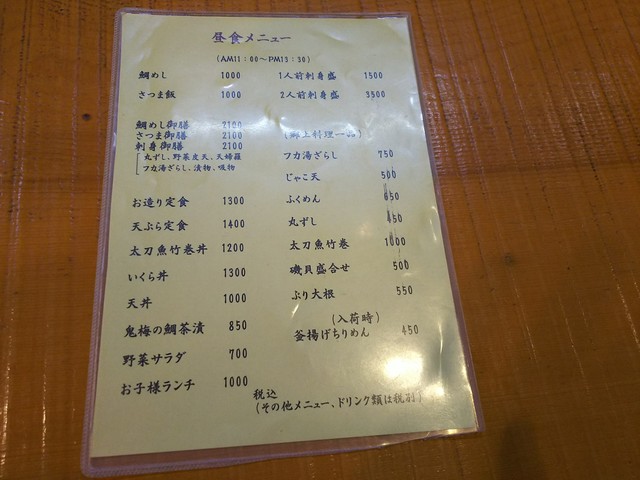 昼食メニュー
(AM11:00~PM13:30)
鯛めし 1000
さつま飯 1000
鯛めし御膳 2100
さつま御膳 2100
刺身御膳 2100
丸ずし、野菜皮天、天婦羅
フカ湯ざらし、漬物、吸物
お造り定食 1300
天ぷら定食 1400
太刀魚竹巻丼 1200
いくら丼 1300
天丼 1000
鬼梅の鯛茶漬 850
野菜サラダ 700
お子様ランチ 1000
1人前刺身盛 1500
2人前刺身盛 3500
(郷土料理一品)
フカ湯ざらし 750
じゃこ天 500
ふくめん 650
丸ずし 450
太刀魚竹巻 1000
磯貝盛合せ 500
ぶり大根 550
(入荷時)
釜揚げちりめん 450
税込
(その他メニュー、ドリンク類は税別)